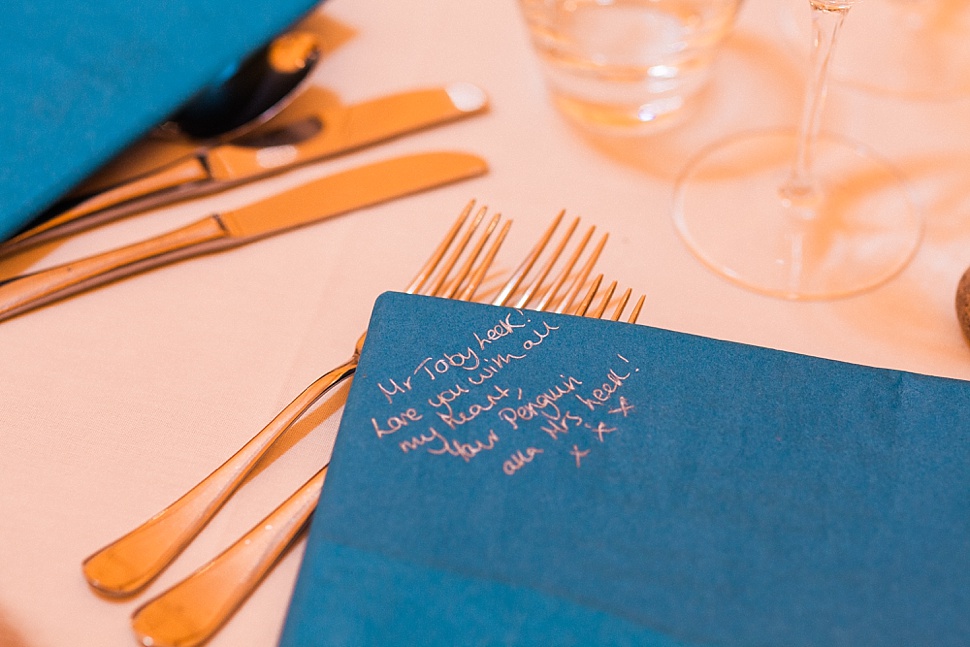 Mr Toby Leek!
Love you with all
my heart,
Your Penguin
aka Mrs Leek!
x x x